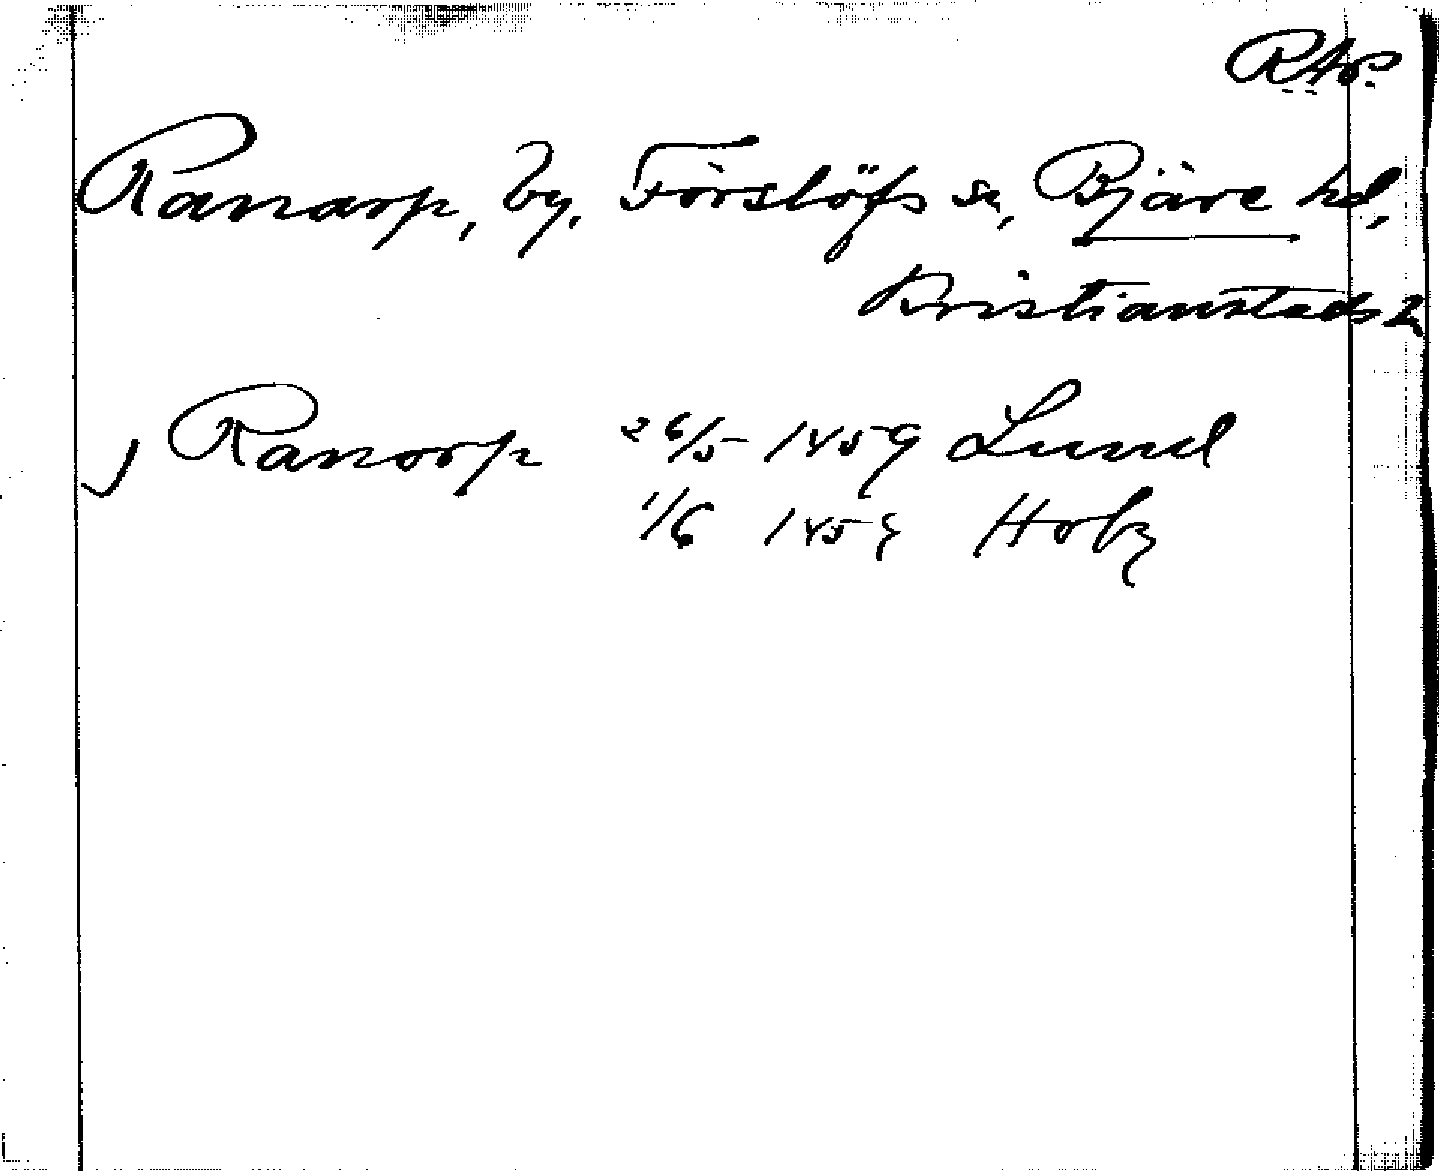 RAp.
Ranarp, by, Förslöfs sn, Bjäre hd,
Kristianstads ln
Ranorp 26/5 1459 Lund
1/6 1459 Hoby